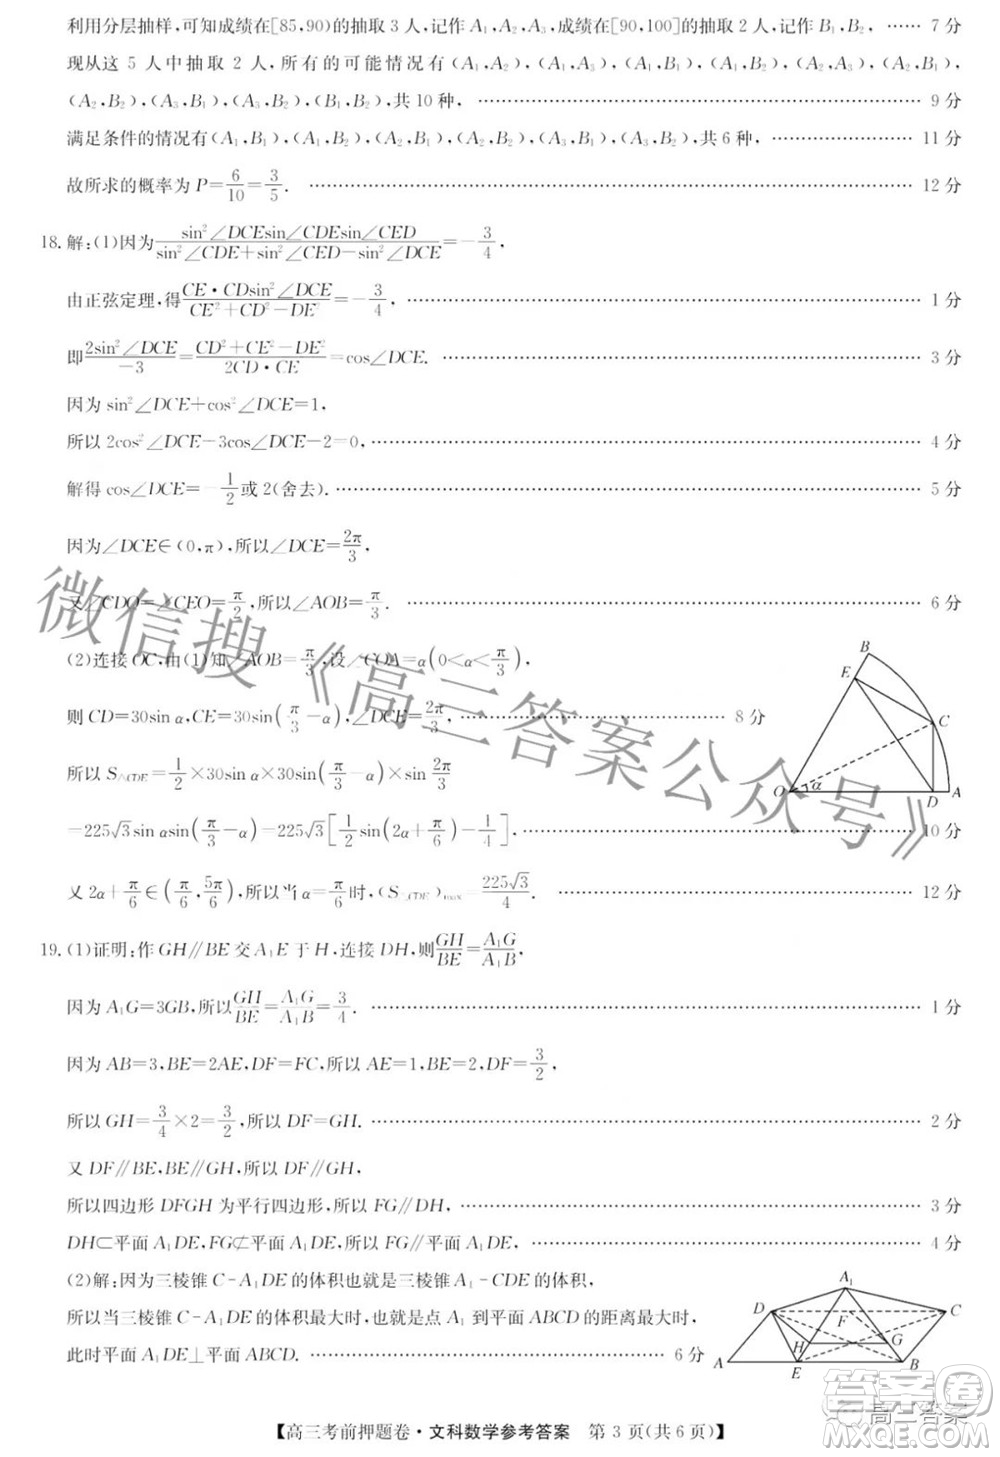 利用分层抽样,可知成绩在[85,90)的抽取 3 人,记作 A₁,A₂,A₃,成绩在[90,100]的抽取 2 人,记作 B₁,B₂. …… 7 分
现从这 5 人中抽取 2 人,所有的可能情况有(A₁,A₂),(A₁,A₃),(A₁,B₁),(A₁,B₂),(A₂,A₃),(A₂,B₁),
(A₂,B₂),(A₃,B₁),(A₃,B₂),(B₁,B₂),共 10 种, …… 9 分
满足条件的情况有(A₁,B₁),(A₁,B₂),(A₂,B₁),(A₂,B₂),(A₃,B₁),(A₃,B₂),共 6 种, …… 11 分
故所求的概率为 P=6/10=3/5. …… 12 分
18.解:(1)因为 sin²∠DCEsin∠CDEsin∠CED/(sin²∠CDE+sin²∠CED−sin²∠DCE)=−3/4,
由正弦定理,得 CE·CDsin²∠DCE/(CE²+CD²−DE²)=−3/4, …… 1 分
即 2sin²∠DCE/−3=(CD²+CE²−DE²)/(2CD·CE)=cos∠DCE. …… 3 分
因为 sin²∠DCE+cos²∠DCE=1,
所以 2cos²∠DCE−3cos∠DCE−2=0, …… 4 分
解得 cos∠DCE=−1/2 或 2(舍去). …… 5 分
因为∠DCE∈(0,π),所以∠DCE=2π/3.
又∠CDO=∠CEO=π/2,所以∠AOB=π/3. …… 6 分
(2)连接 OC,由(1)知∠AOB=π/3,设∠COA=α(0<α<π/3),
则 CD=30sin α,CE=30sin(π/3−α),∠DCE=2π/3, …… 8 分
所以 S△CDE=1/2×30sin α×30sin(π/3−α)×sin 2π/3
=225√3sin αsin(π/3−α)=225√3[1/2sin(2α+π/6)−1/4], …… 10 分
又 2α+π/6∈(π/6,5π/6),所以当 α=π/6时,(S△CDE)max=225√3/4. …… 12 分
B
E
C
O
α
D
A
19.(1)证明:作 GH∥BE 交 A₁E 于 H,连接 DH,则 GH/BE=A₁G/A₁B,
因为 A₁G=3GB,所以 GH/BE=A₁G/A₁B=3/4. …… 1 分
因为 AB=3,BE=2AE,DF=FC,所以 AE=1,BE=2,DF=3/2,
所以 GH=3/4×2=3/2,所以 DF=GH. …… 2 分
又 DF∥BE,BE∥GH,所以 DF∥GH,
所以四边形 DFGH 为平行四边形,所以 FG∥DH, …… 3 分
DH⊂平面 A₁DE,FG⊄平面 A₁DE,所以 FG∥平面 A₁DE. …… 4 分
(2)解:因为三棱锥 C−A₁DE 的体积也就是三棱锥 A₁−CDE 的体积,
所以当三棱锥 C−A₁DE 的体积最大时,也就是点 A₁ 到平面 ABCD 的距离最大时,
此时平面 A₁DE⊥平面 ABCD. …… 6 分
A₁
D
F
C
H
G
A
E
B
【高三考前押题卷·文科数学参考答案 第 3 页(共 6 页)】
微信搜《高三答案公众号》
答案圈
高三答案
MXQE.COM